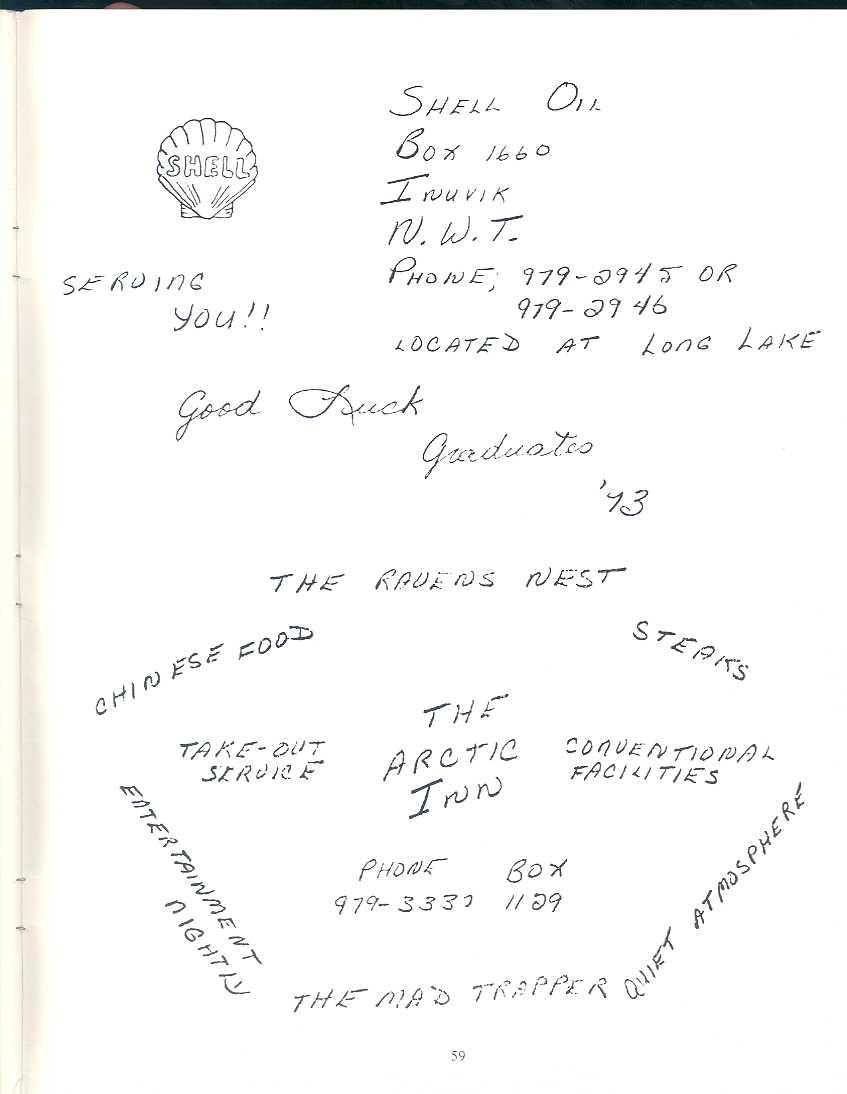 SHELL
SHELL OIL
BOX 1660
INUVIK
N.W.T.
PHONE; 979-2945 OR
979-2946
LOCATED AT LONG LAKE
SERVING
YOU!!
Good Luck
Graduates
'73
THE RAVENS NEST
CHINESE FOOD
STEAKS
THE
ARCTIC
INN
TAKE-OUT
SERVICE
CONVENTIONAL
FACILITIES
ENTERTAINMENT
NIGHTLY
QUIET ATMOSPHERE
PHONE BOX
979-3337 1129
THE MAD TRAPPER
59